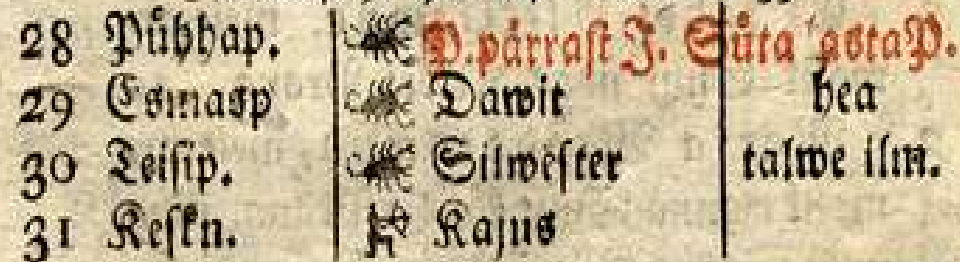 28 Pühhap. P. pärrast J. Süta aastaP.
29 Esmasp Dawit hea
30 Teisip. Silwester talwe ilm.
31 Keskn. Kajus